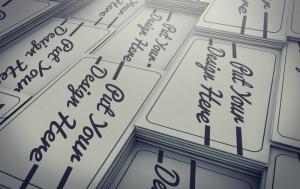 Put Your
Design Here
Put Your
Design Here
Put Your
Design Here
Put Your
Design Here